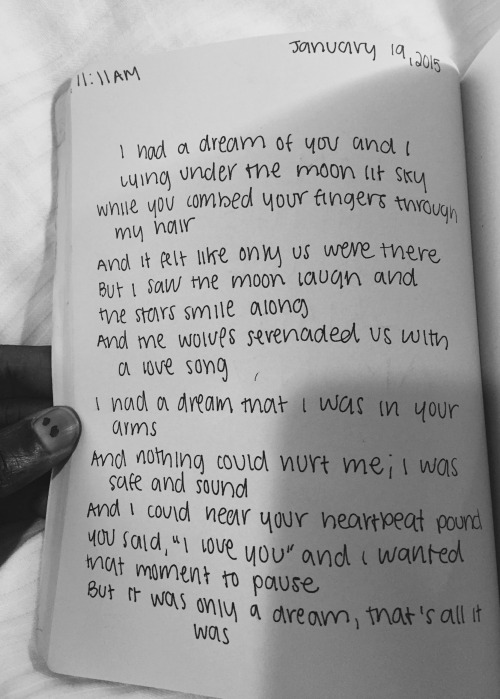 January 19, 2015
11:11AM
I had a dream of you and I
lying under the moon lit sky
while you combed your fingers through
my hair
And it felt like only us were there
But I saw the moon laugh and
the stars smile along
And the wolves serenaded us with
a love song
I had a dream that I was in your
arms
And nothing could hurt me; I was
safe and sound
And I could hear your heartbeat pound
you said, "I love you" and I wanted
that moment to pause
But it was only a dream, that's all it
was